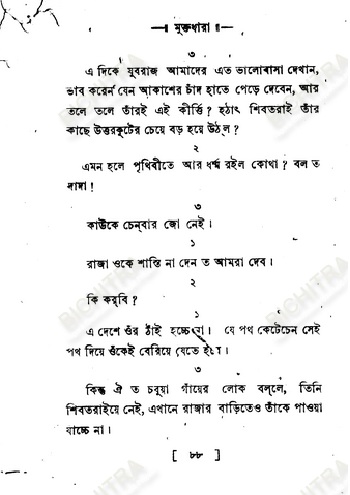 মুক্তধারা
৩
এ দিকে যুবরাজ আমাদের এত ভালোবাসা দেখান,
ভাব করেন যেন আকাশের চাঁদ হাতে পেড়ে দেবেন, আর
তলে তলে তাঁরই এই কীর্ত্তি? হঠাৎ শিবতরাই তাঁর
কাছে উত্তরকূটের চেয়ে বড় হয়ে উঠ্‌ল?
২
এমন হলে পৃথিবীতে আর ধর্ম্ম রইল কোথা? বল ত
দাদা!
৩
কাউকে চেন্‌বার জো নেই।
১
রাজা ওকে শাস্তি না দেন ত আমরা দেব।
২
কি কর্‌বি?
১
এ দেশে ওঁর ঠাঁই হচ্চে না। যে পথ কেটেচেন সেই
পথ দিয়ে ওঁকেই বেরিয়ে যেতে হবে।
৩
কিন্তু ঐ ত চবুয়া গাঁয়ের লোক বল্‌লে, তিনি
শিবতরাইয়ে নেই, এখানে রাজার বাড়িতেও তাঁকে পাওয়া
যাচ্চে না।
[ ৮৮ ]
BICHITRA